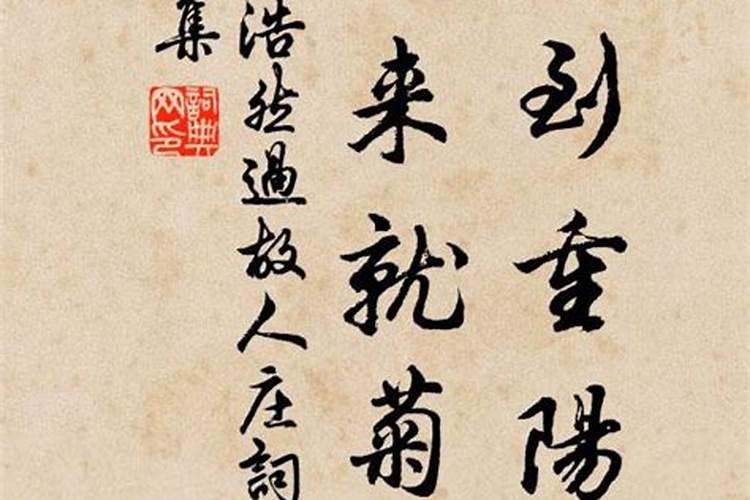 到重陽
来就菊
浩然過故人庄詞
集
詞典網印